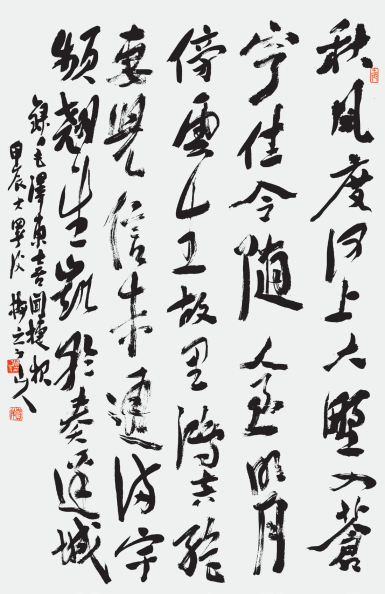 秋風度河上大野入蒼
穹佳令隨人至明月
傍雲生故里鴻音絕
妻兒信未通滿宇
頻翹望凱歌奏邊城
錄毛澤東喜聞捷報
甲辰大暑後山人